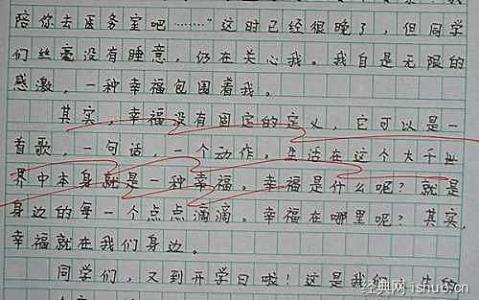 陪你去医务室吧………"这时已经很晚了，但同学
们丝毫没有睡意，仍在关心我。我自是无限的
感激，一种幸福包围着我。
其实，幸福没有固定的定义，它可以是一
首歌，一句话，一个动作。生活在这个大千世
界中本身就是一种幸福。幸福是什么呢？就是
身边的每一个点点滴滴。幸福在哪里呢？其实，
幸福就在我们身边。
同学们，又到开学日啦！这是我们
经典网 ishuo.cn